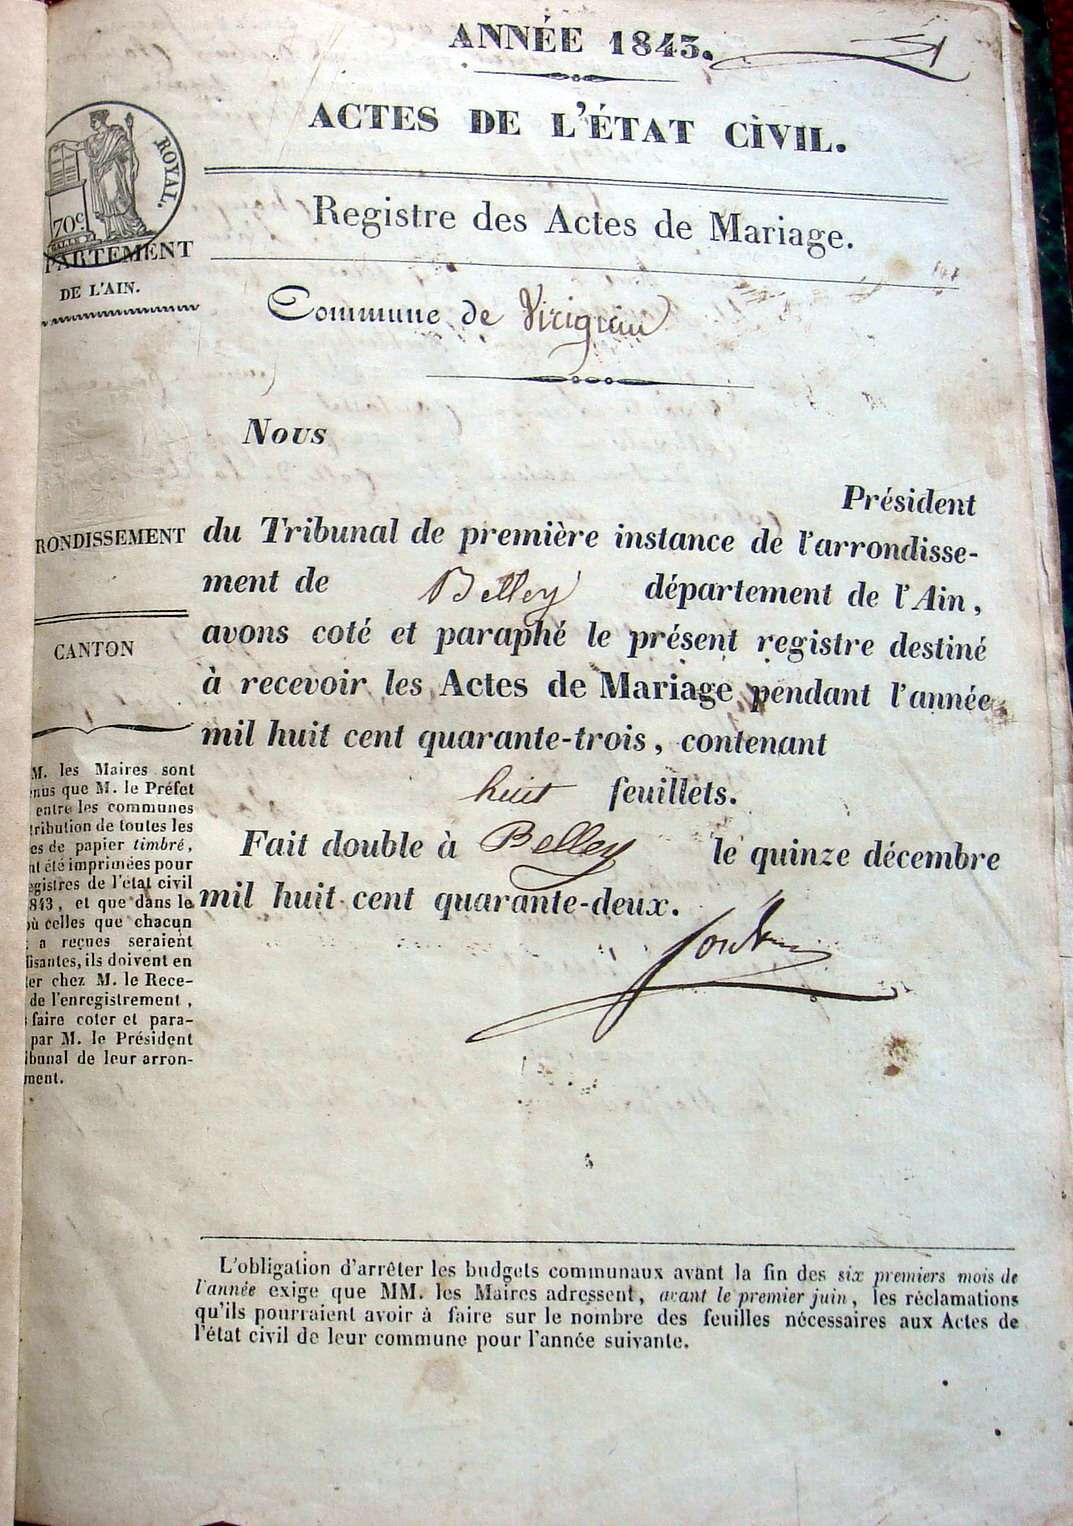 ANNÉE 1843.
ACTES DE L'ÉTAT CIVIL.
ROYAL.
70c
PARTEMENT
DE L'AIN.
Registre des Actes de Mariage.
Commune de Virignin
Nous
Président
RONDISSEMENT
du Tribunal de première instance de l'arrondisse-
ment de Belley département de l'Ain,
avons coté et paraphé le présent registre destiné
CANTON
à recevoir les Actes de Mariage pendant l'année
mil huit cent quarante-trois, contenant
huit feuillets.
Fait double à Belley le quinze décembre
mil huit cent quarante-deux.
M. les Maires sont
nus que M. le Préfet
entre les communes
tribution de toutes les
es de papier timbré,
nt été imprimées pour
egistres de l'état civil
843, et que dans le
où celles que chacun
a reçues seraient
fisantes, ils doivent en
er chez M. le Rece-
de l'enregistrement,
faire coter et para-
par M. le Président
ibunal de leur arron-
ment.
L'obligation d'arrêter les budgets communaux avant la fin des six premiers mois de
l'année exige que MM. les Maires adressent, avant le premier juin, les réclamations
qu'ils pourraient avoir à faire sur le nombre des feuilles nécessaires aux Actes de
l'état civil de leur commune pour l'année suivante.